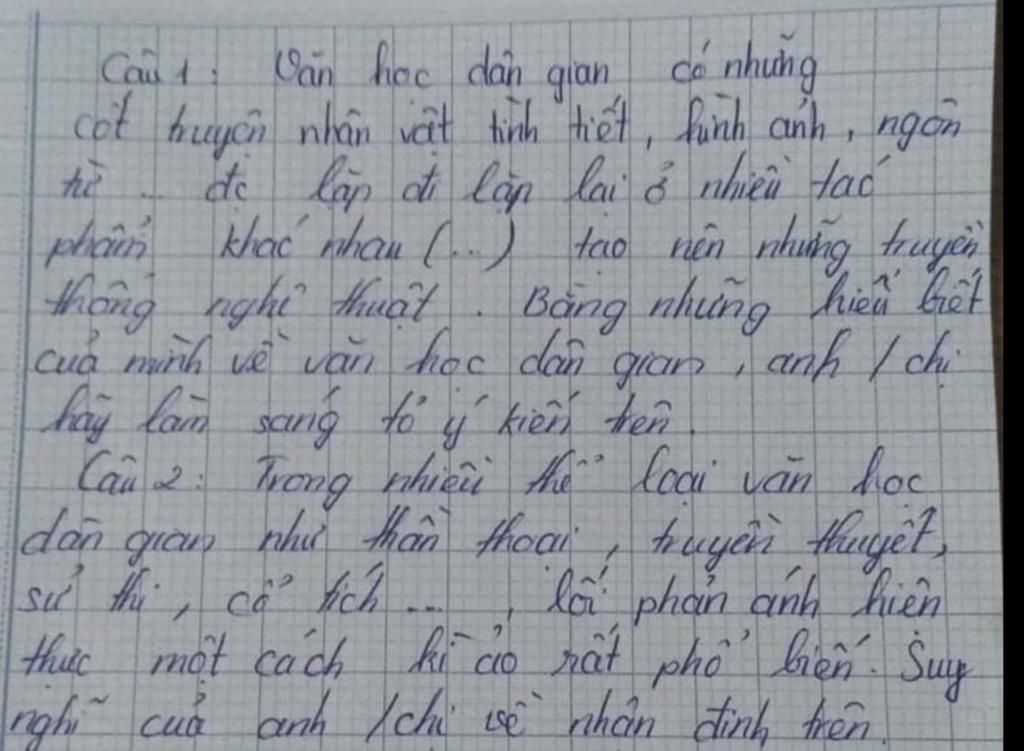 Câu 1: Văn học dân gian có những
cốt truyện nhân vật tình tiết, hình ảnh, ngôn
từ ... đc lặp đi lặp lại ở nhiều tác
phẩm khác nhau (...) tạo nên những truyền
thống nghệ thuật. Bằng những hiểu biết
của mình về văn học dân gian, anh / chị
hãy làm sáng tỏ ý kiến trên.
Câu 2: Trong nhiều thể loại văn học
dân gian như thần thoại, truyền thuyết,
sử thi, cổ tích ..., lối phản ánh hiện
thực một cách kì ảo rất phổ biến. Suy
nghĩ của anh /chị về nhận định trên.